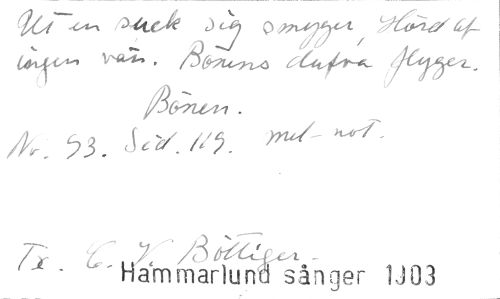 Ut en suck sig smyger, Hörd af
ingen vän. Bönens dufva flyger.
Bönen.
No. 93. Sid. 119. mel-not.
Tx. C. V. Böttiger.
Hammarlund sånger 1903